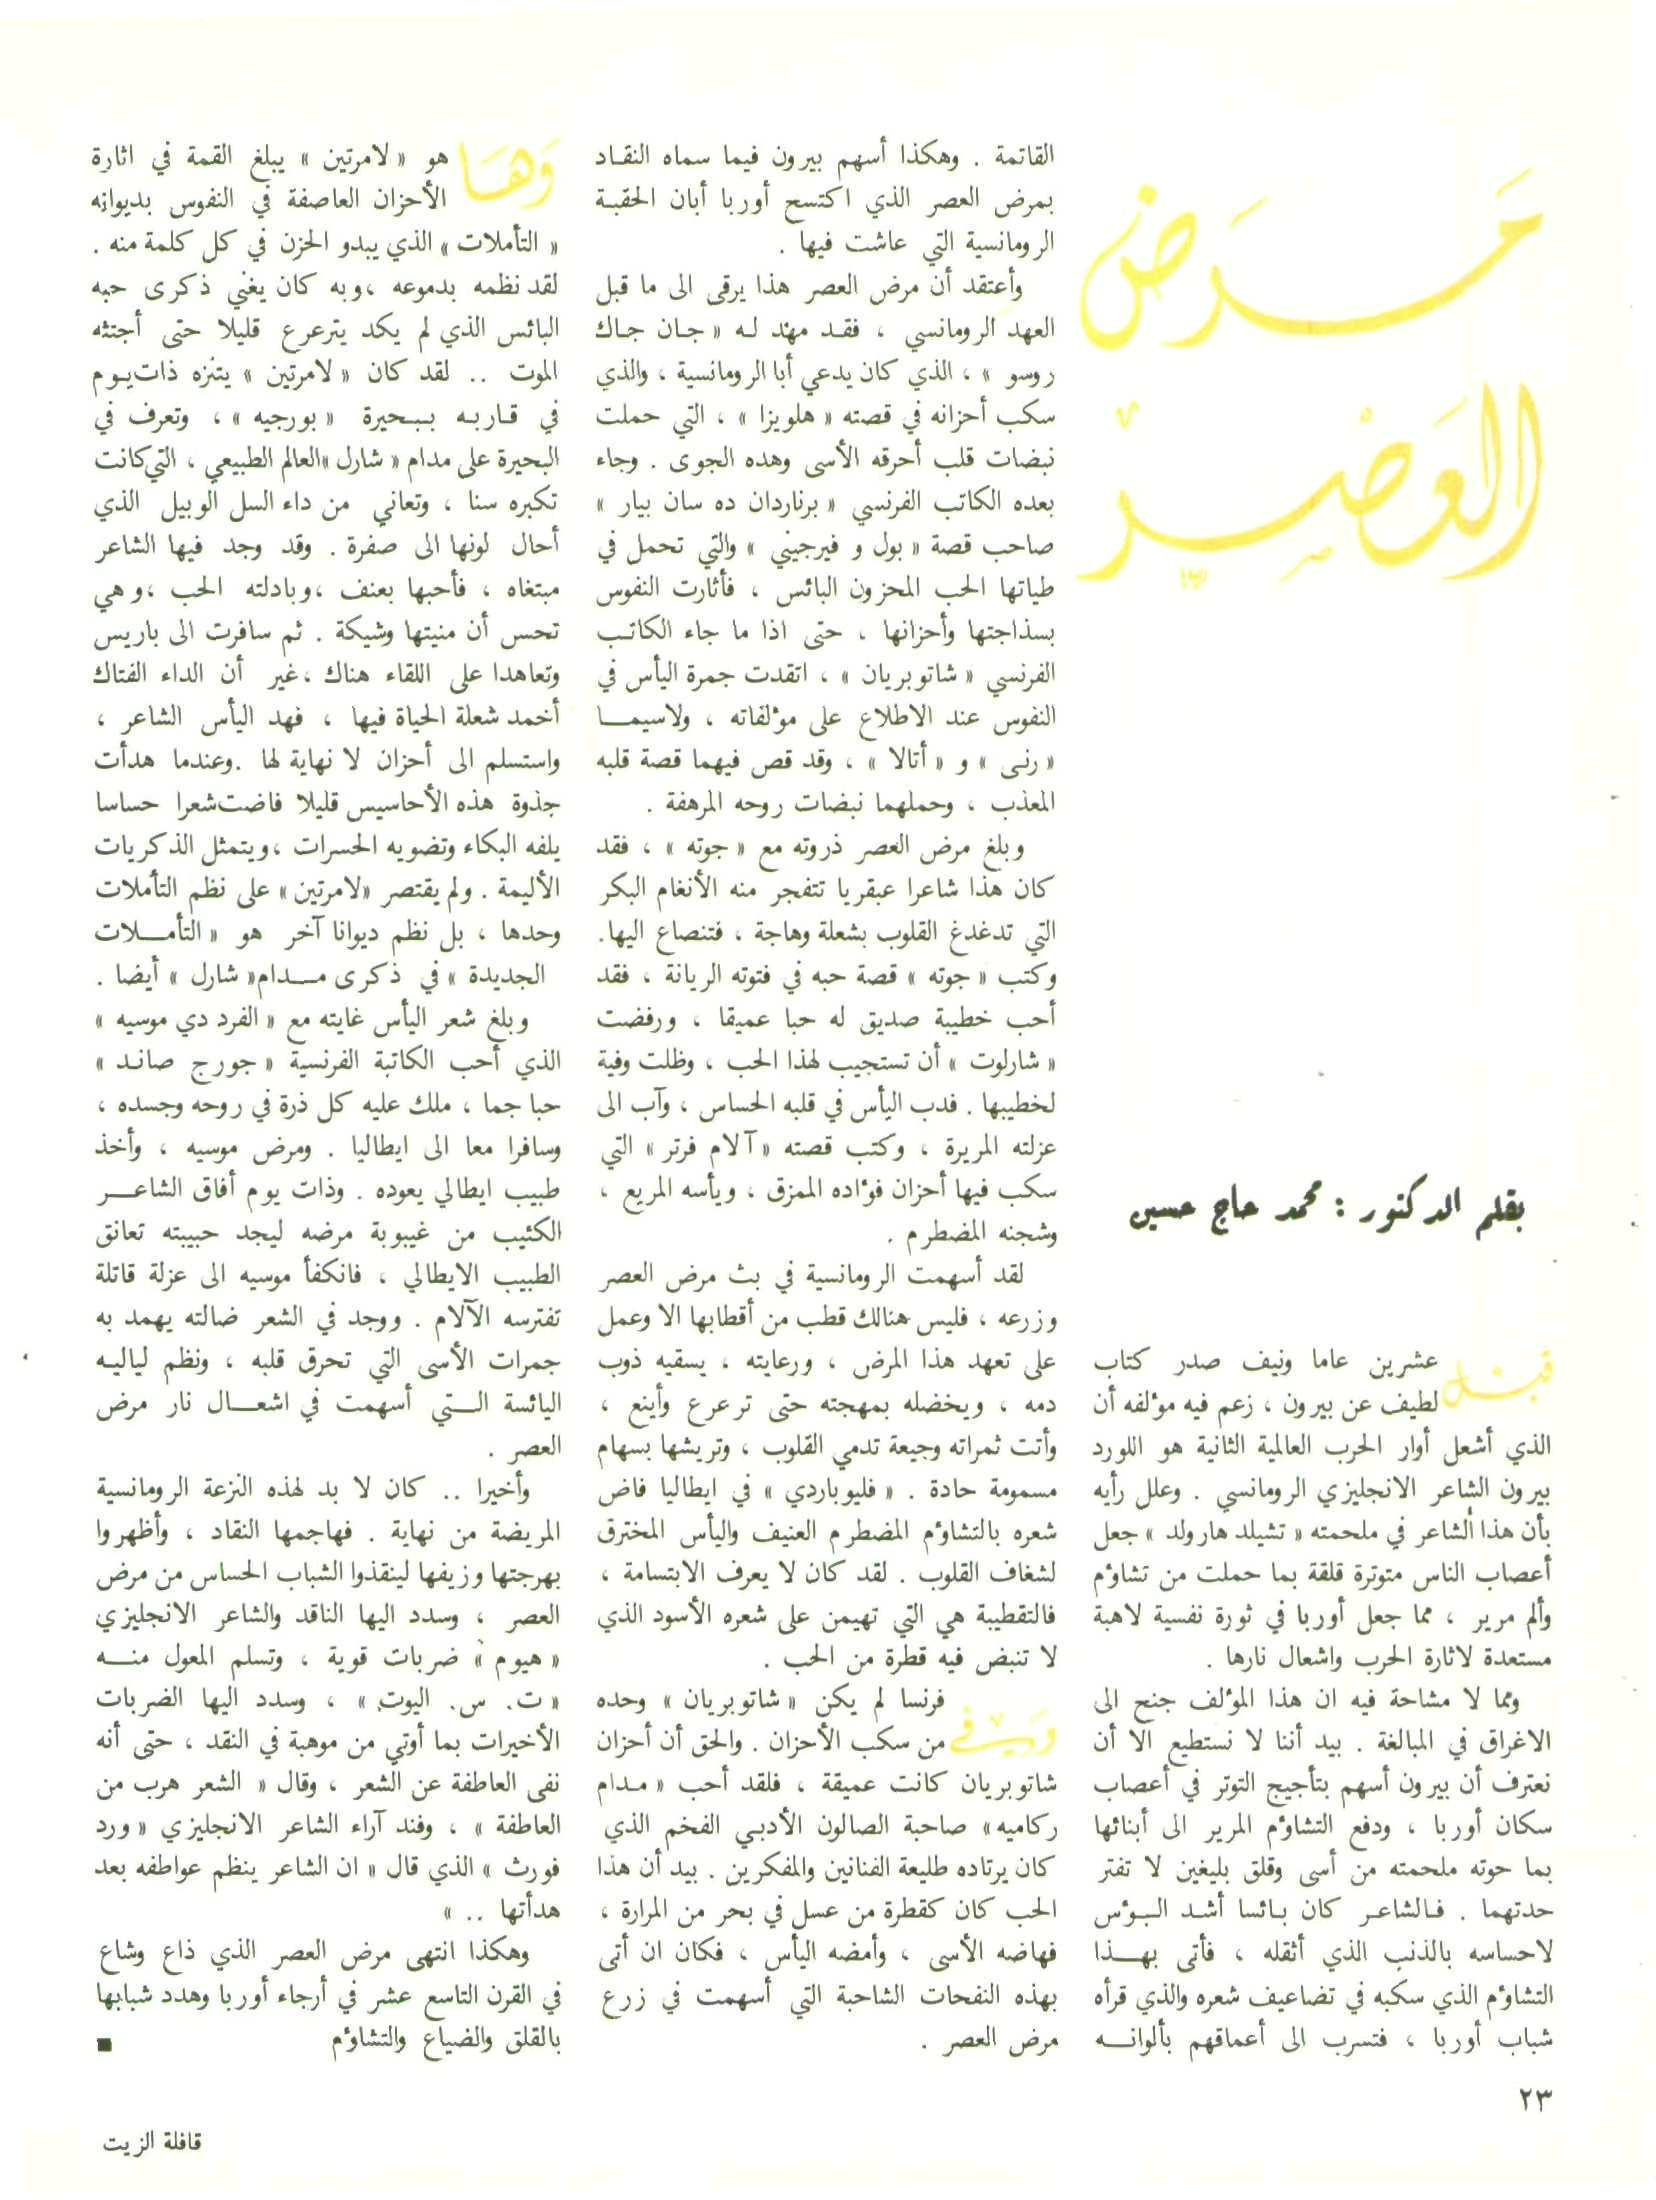 مرض
العصر
بقلم الدكتور : محمد حاج حسين
قبل عشرين عاما ونيف صدر كتاب
لطيف عن بيرون ، زعم فيه مؤلفه أن
الذي أشعل أوار الحرب العالمية الثانية هو اللورد
بيرون الشاعر الانجليزي الرومانسي . وعلل رأيه
بأن هذا الشاعر في ملحمته « تشيلد هارولد » جعل
أعصاب الناس متوترة قلقة بما حملت من تشاؤم
وألم مرير ، مما جعل أوربا في ثورة نفسية لاهبة
مستعدة لاثارة الحرب واشعال نارها .
ومما لا مشاحة فيه ان هذا المؤلف جنح الى
الاغراق في المبالغة . بيد أننا لا نستطيع الا أن
نعترف أن بيرون أسهم بتأجيج التوتر في أعصاب
سكان أوربا ، ودفع التشاؤم المرير الى أبنائها
بما حوته ملحمته من أسى وقلق بليغين لا تفتر
حدتهما . فالشاعر كان بائسا أشد البؤس
لاحساسه بالذنب الذي أثقله ، فأتى بهذا
التشاؤم الذي سكبه في تضاعيف شعره والذي قرأه
شباب أوربا ، فتسرب الى أعماقهم بألوانه
القاتمة . وهكذا أسهم بيرون فيما سماه النقاد
بمرض العصر الذي اكتسح أوربا أبان الحقبة
الرومانسية التي عاشت فيها .
وأعتقد أن مرض العصر هذا يرقى الى ما قبل
العهد الرومانسي ، فقد مهد له « جان جاك
روسو » ، الذي كان يدعي أبا الرومانسية ، والذي
سكب أحزانه في قصته « هلويزا » ، التي حملت
نبضات قلب أحرقه الأسى وهده الجوى . وجاء
بعده الكاتب الفرنسي « برناردان ده سان بيار »
صاحب قصة « بول و فيرجيني » والتي تحمل في
طياتها الحب المحزون البائس ، فأثارت النفوس
بسذاجتها وأحزانها ، حتى اذا ما جاء الكاتب
الفرنسي « شاتوبريان » ، اتقدت جمرة اليأس في
النفوس عند الاطلاع على مؤلفاته ، ولاسيما
« رنى » و « أتالا » ، وقد قص فيهما قصة قلبه
المعذب ، وحملهما نبضات روحه المرهفة .
وبلغ مرض العصر ذروته مع « جوته » ، فقد
كان هذا شاعرا عبقريا تتفجر منه الأنغام البكر
التي تدغدغ القلوب بشعلة وهاجة ، فتنصاع اليها.
وكتب « جوته » قصة حبه في فتوته الريانة ، فقد
أحب خطيبة صديق له حبا عميقا ، ورفضت
« شارلوت » أن تستجيب لهذا الحب ، وظلت وفية
لخطيبها . فدب اليأس في قلبه الحساس ، وآب الى
عزلته المريرة ، وكتب قصته « آلام فرتر » التي
سكب فيها أحزان فؤاده الممزق ، ويأسه المريع ،
وشجنه المضطرم .
لقد أسهمت الرومانسية في بث مرض العصر
وزرعه ، فليس هنالك قطب من أقطابها الا وعمل
على تعهد هذا المرض ، ورعايته ، يسقيه ذوب
دمه ، ويخضله بمهجته حتى ترعرع وأينع ،
وأتت ثمراته وجيعة تدمي القلوب ، وتريشها بسهام
مسمومة حادة . « فليوباردي » في ايطاليا فاض
شعره بالتشاؤم المضطرم العنيف واليأس المخترق
لشغاف القلوب . لقد كان لا يعرف الابتسامة ،
فالتقطيبة هي التي تهيمن على شعره الأسود الذي
لا تنبض فيه قطرة من الحب .
وفي فرنسا لم يكن « شاتوبريان » وحده
من سكب الأحزان . والحق أن أحزان
شاتوبريان كانت عميقة ، فلقد أحب « مدام
ركاميه» صاحبة الصالون الأدبي الفخم الذي
كان يرتاده طليعة الفنانين والمفكرين . بيد أن هذا
الحب كان كقطرة من عسل في بحر من المرارة ،
فهاضه الأسى ، وأمضه اليأس ، فكان ان أتى
بهذه النفحات الشاحبة التي أسهمت في زرع
مرض العصر .
وها هو « لامرتين » يبلغ القمة في اثارة
الأحزان العاصفة في النفوس بديوانه
« التأملات » الذي يبدو الحزن في كل كلمة منه .
لقد نظمه بدموعه ،وبه كان يغني ذكرى حبه
البائس الذي لم يكد يترعرع قليلا حتى أجتثه
الموت .. لقد كان « لامرتين » يتنزه ذات يوم
في قاربه ببحيرة « بورجيه » ، وتعرف في
البحيرة على مدام « شارل »العالم الطبيعي ، التي كانت
تكبره سنا ، وتعاني من داء السل الوبيل الذي
أحال لونها الى صفرة . وقد وجد فيها الشاعر
مبتغاه ، فأحبها بعنف ،وبادلته الحب ،وهي
تحس أن منيتها وشيكة . ثم سافرت الى باريس
وتعاهدا على اللقاء هناك ،غير أن الداء الفتاك
أخمد شعلة الحياة فيها ، فهد اليأس الشاعر ،
واستسلم الى أحزان لا نهاية لها .وعندما هدأت
جذوة هذه الأحاسيس قليلا فاضت شعرا حساسا
يلفه البكاء وتضويه الحسرات ،ويتمثل الذكريات
الأليمة . ولم يقتصر «لامرتين» على نظم التأملات
وحدها ، بل نظم ديوانا آخر هو « التأملات
الجديدة » في ذكرى مدام« شارل » أيضا .
وبلغ شعر اليأس غايته مع « الفرد دي موسيه »
الذي أحب الكاتبة الفرنسية « جورج صاند »
حبا جما ، ملك عليه كل ذرة في روحه وجسده ،
وسافرا معا الى ايطاليا . ومرض موسيه ، وأخذ
طبيب ايطالي يعوده . وذات يوم أفاق الشاعر
الكئيب من غيبوبة مرضه ليجد حبيبته تعانق
الطبيب الايطالي ، فانكفأ موسيه الى عزلة قاتلة
تفترسه الآلام . ووجد في الشعر ضالته يهمد به
جمرات الأسى التي تحرق قلبه ، ونظم لياليه
اليائسة التي أسهمت في اشعال نار مرض
العصر .
وأخيرا .. كان لا بد لهذه النزعة الرومانسية
المريضة من نهاية . فهاجمها النقاد ، وأظهروا
بهرجتها وزيفها لينقذوا الشباب الحساس من مرض
العصر ، وسدد اليها الناقد والشاعر الانجليزي
« هيوم » ضربات قوية ، وتسلم المعول منه
« ت. س. اليوت. » ، وسدد اليها الضربات
الأخيرات بما أوتي من موهبة في النقد ، حتى أنه
نفى العاطفة عن الشعر ، وقال « الشعر هرب من
العاطفة » ، وفند آراء الشاعر الانجليزي « ورد
فورث » الذي قال « ان الشاعر ينظم عواطفه بعد
هدأتها .. »
وهكذا انتهى مرض العصر الذي ذاع وشاع
في القرن التاسع عشر في أرجاء أوربا وهدد شبابها
بالقلق والضياع والتشاؤم ■
٢٣
قافلة الزيت